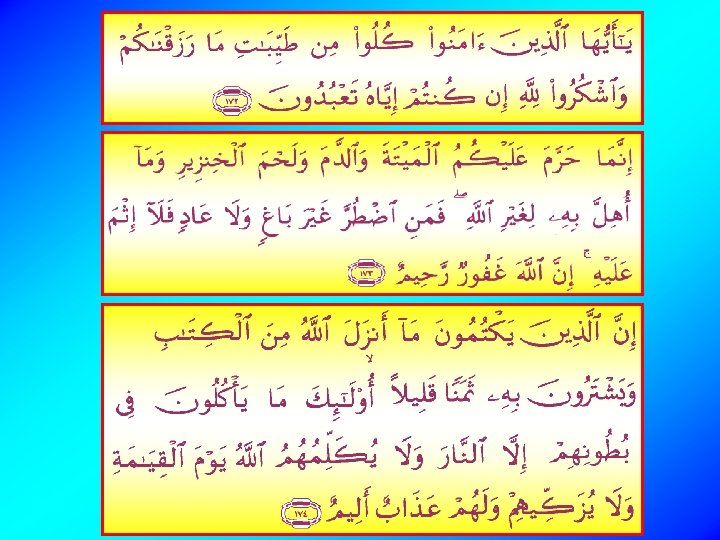 يَـٰٓأَيُّهَا ٱلَّذِينَ ءَامَنُوا۟ كُلُوا۟ مِن طَيِّبَـٰتِ مَا رَزَقْنَـٰكُمْ
وَٱشْكُرُوا۟ لِلَّهِ إِن كُنتُمْ إِيَّاهُ تَعْبُدُونَ ١٧٢
إِنَّمَا حَرَّمَ عَلَيْكُمُ ٱلْمَيْتَةَ وَٱلدَّمَ وَلَحْمَ ٱلْخِنزِيرِ وَمَآ
أُهِلَّ بِهِۦ لِغَيْرِ ٱللَّهِ ۖ فَمَنِ ٱضْطُرَّ غَيْرَ بَاغٍ وَلَا عَادٍ فَلَآ إِثْمَ
عَلَيْهِ ۚ إِنَّ ٱللَّهَ غَفُورٌ رَّحِيمٌ ١٧٣
إِنَّ ٱلَّذِينَ يَكْتُمُونَ مَآ أَنزَلَ ٱللَّهُ مِنَ ٱلْكِتَـٰبِ
وَيَشْتَرُونَ بِهِۦ ثَمَنًا قَلِيلًا ۙ أُو۟لَـٰٓئِكَ مَا يَأْكُلُونَ فِى
بُطُونِهِمْ إِلَّا ٱلنَّارَ وَلَا يُكَلِّمُهُمُ ٱللَّهُ يَوْمَ ٱلْقِيَـٰمَةِ
وَلَا يُزَكِّيهِمْ وَلَهُمْ عَذَابٌ أَلِيمٌ ١٧٤